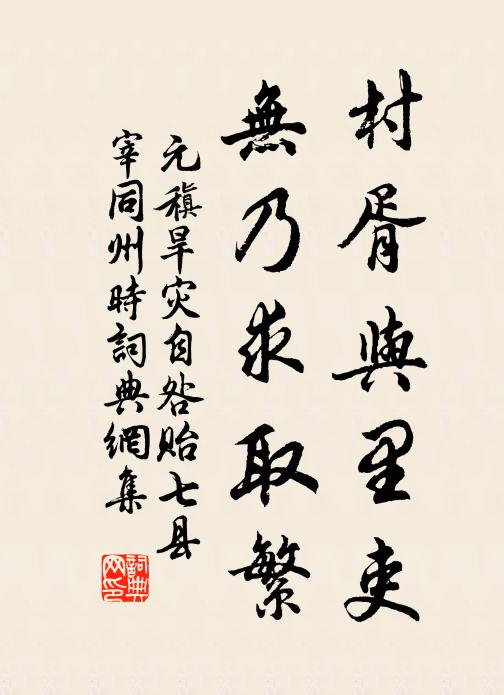 村胥與里吏
無乃求取繁
元稹旱灾自咎贻七县
宰同州時詞典網集
詞典网印